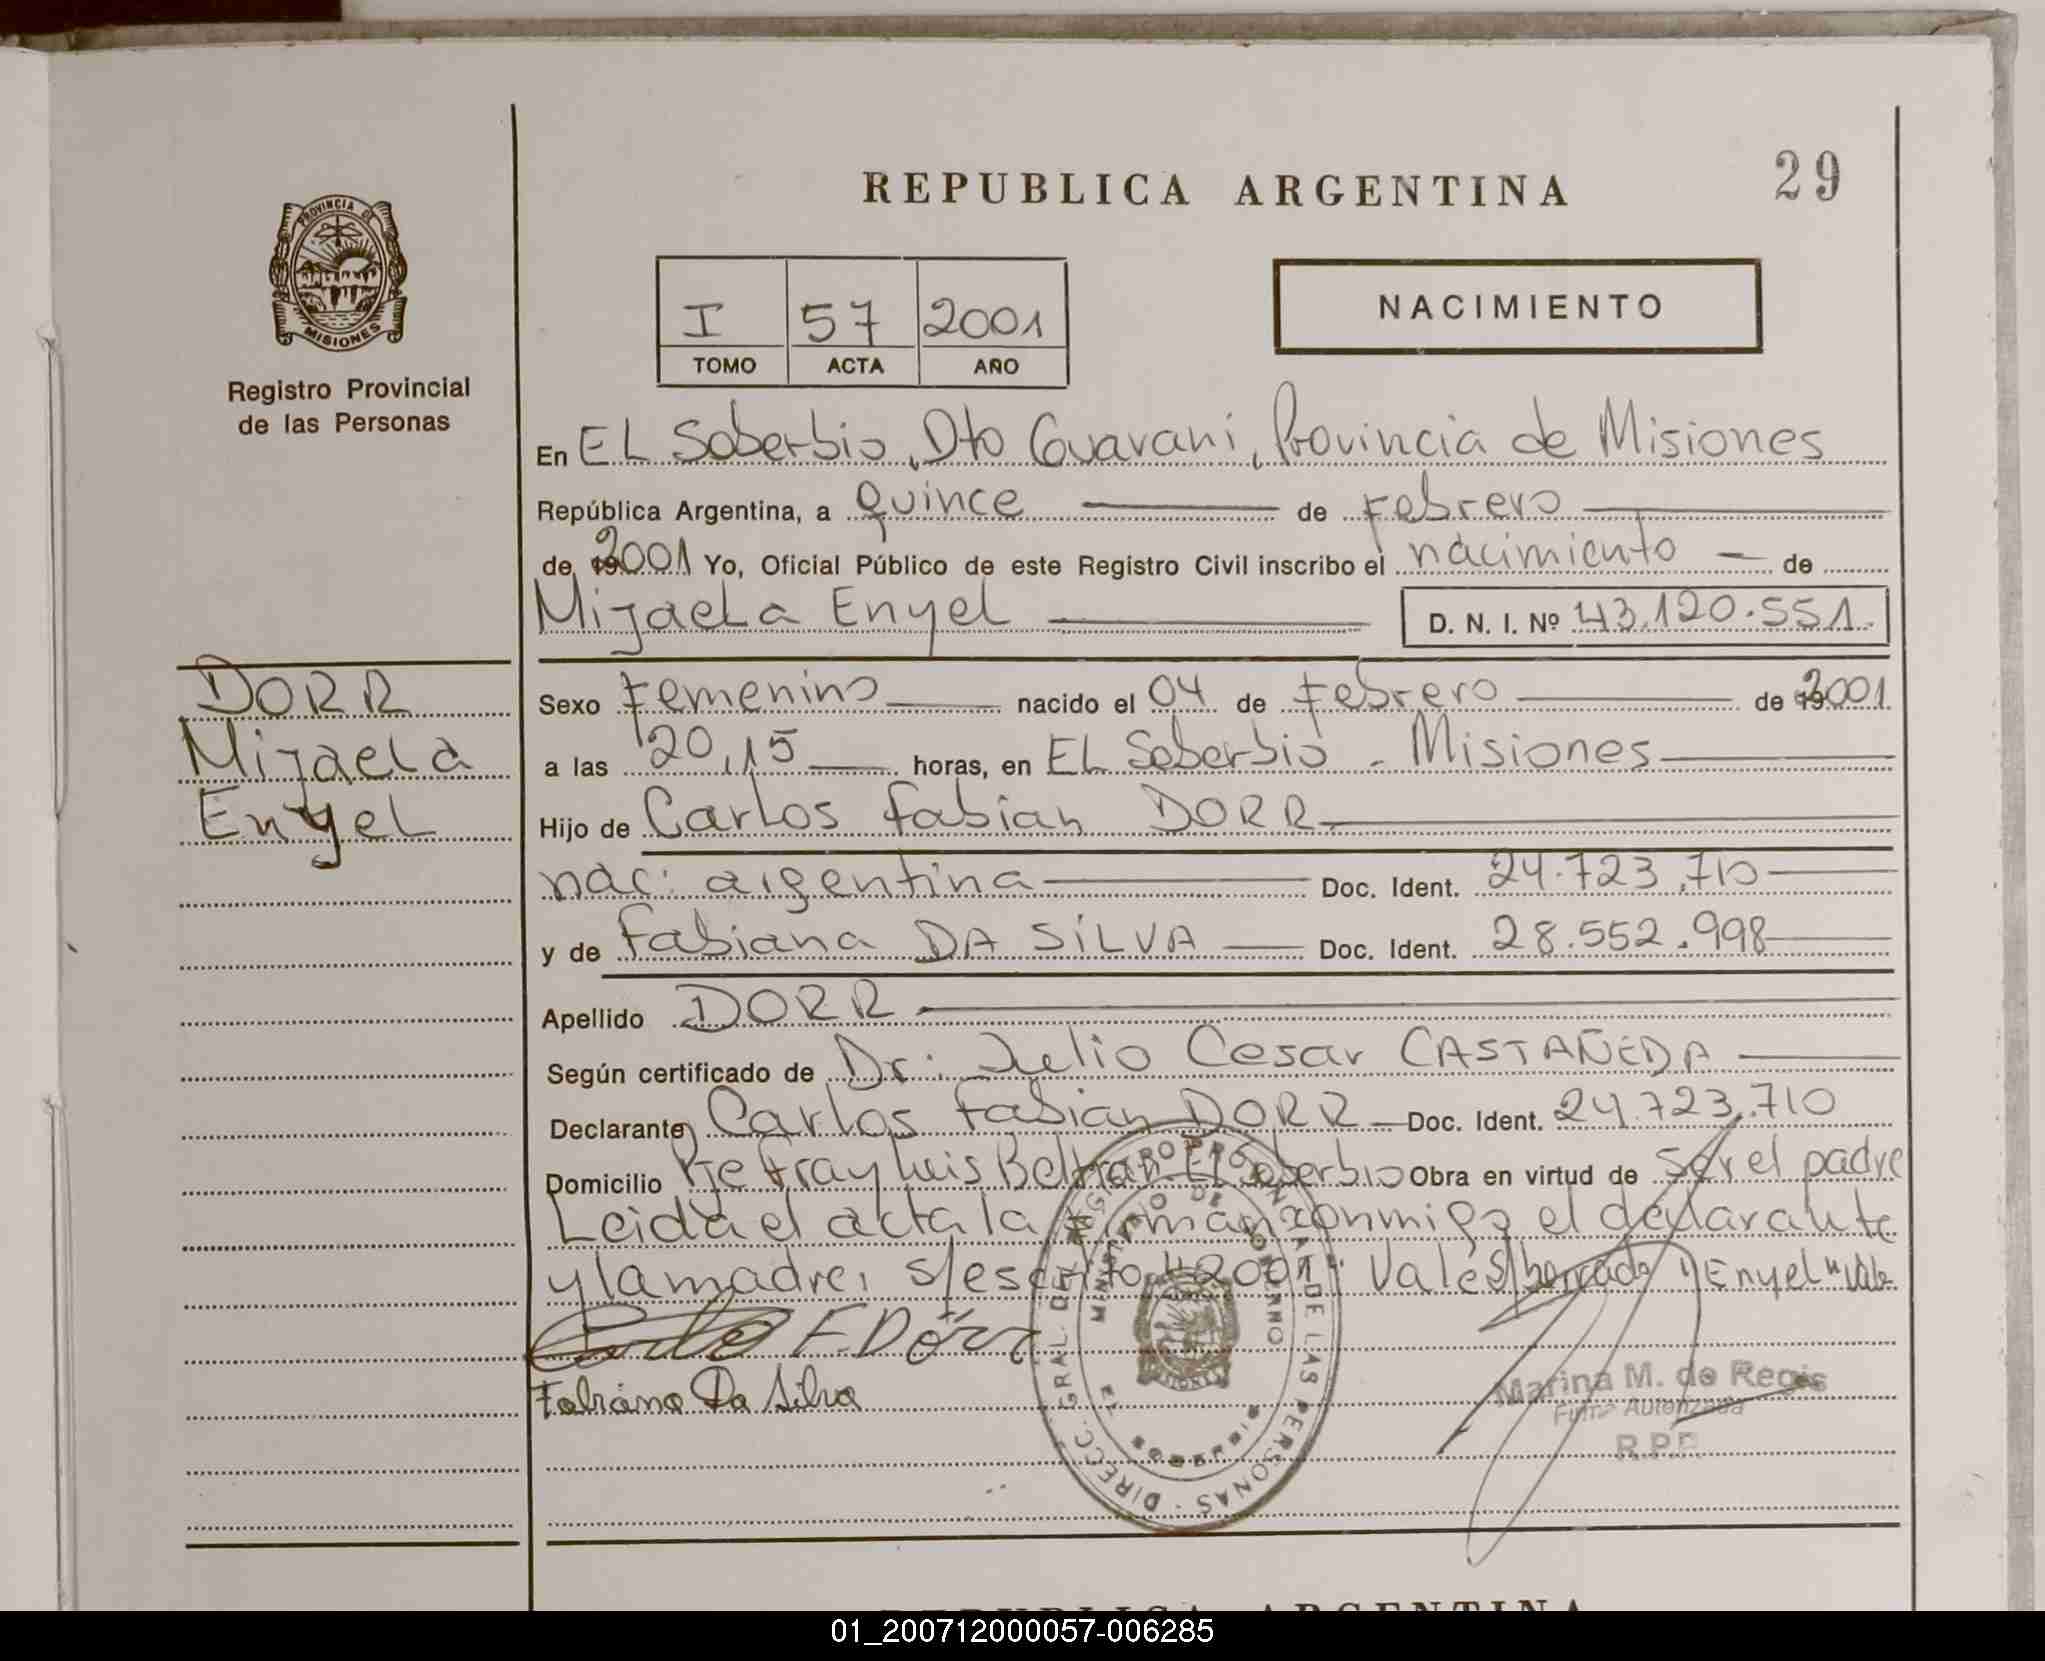 REPUBLICA ARGENTINA
29
PROVINCIA DE
MISIONES
Registro Provincial
de las Personas
I 57 2001
TOMO ACTA AÑO
NACIMIENTO
En EL Soberbio, Dto Guarani, Provincia de Misiones
República Argentina, a quince de Febrero
de 2001 Yo, Oficial Público de este Registro Civil inscribo el nacimiento de
Mijaela Enyel D. N. I. Nº 43.120.551.
DORR
Mijaela
Enyel
Sexo Femenino nacido el 04 de Febrero de 2001
a las 20,15 horas, en EL Soberbio - Misiones
Hijo de Carlos Fabian DORR
nac: argentina Doc. Ident. 24.723.710
y de Fabiana DA SILVA Doc. Ident. 28.552.998
Apellido DORR
Según certificado de Dr: Julio Cesar CASTAÑEDA
Declarante Carlos Fabian DORR Doc. Ident. 24.723.710
Domicilio Pje Fray Luis Beltran El Soberbio Obra en virtud de ser el padre
Leida el acta la firman conmigo el declarante
y la madre, s/escrito "2001" Vale s/borrado "Enyel" Vale
F. Dörr
Fabiana Da Silva
DIRECC. GRAL. DEL REGISTRO PROVINCIAL DE LAS PERSONAS
MINISTERIO DE GOBIERNO
EL SOBERBIO
MISIONES
Marina M. de Regis
Firma Autorizada
R.P.P.
REPUBLICA ARGENTINA
01_200712000057-006285